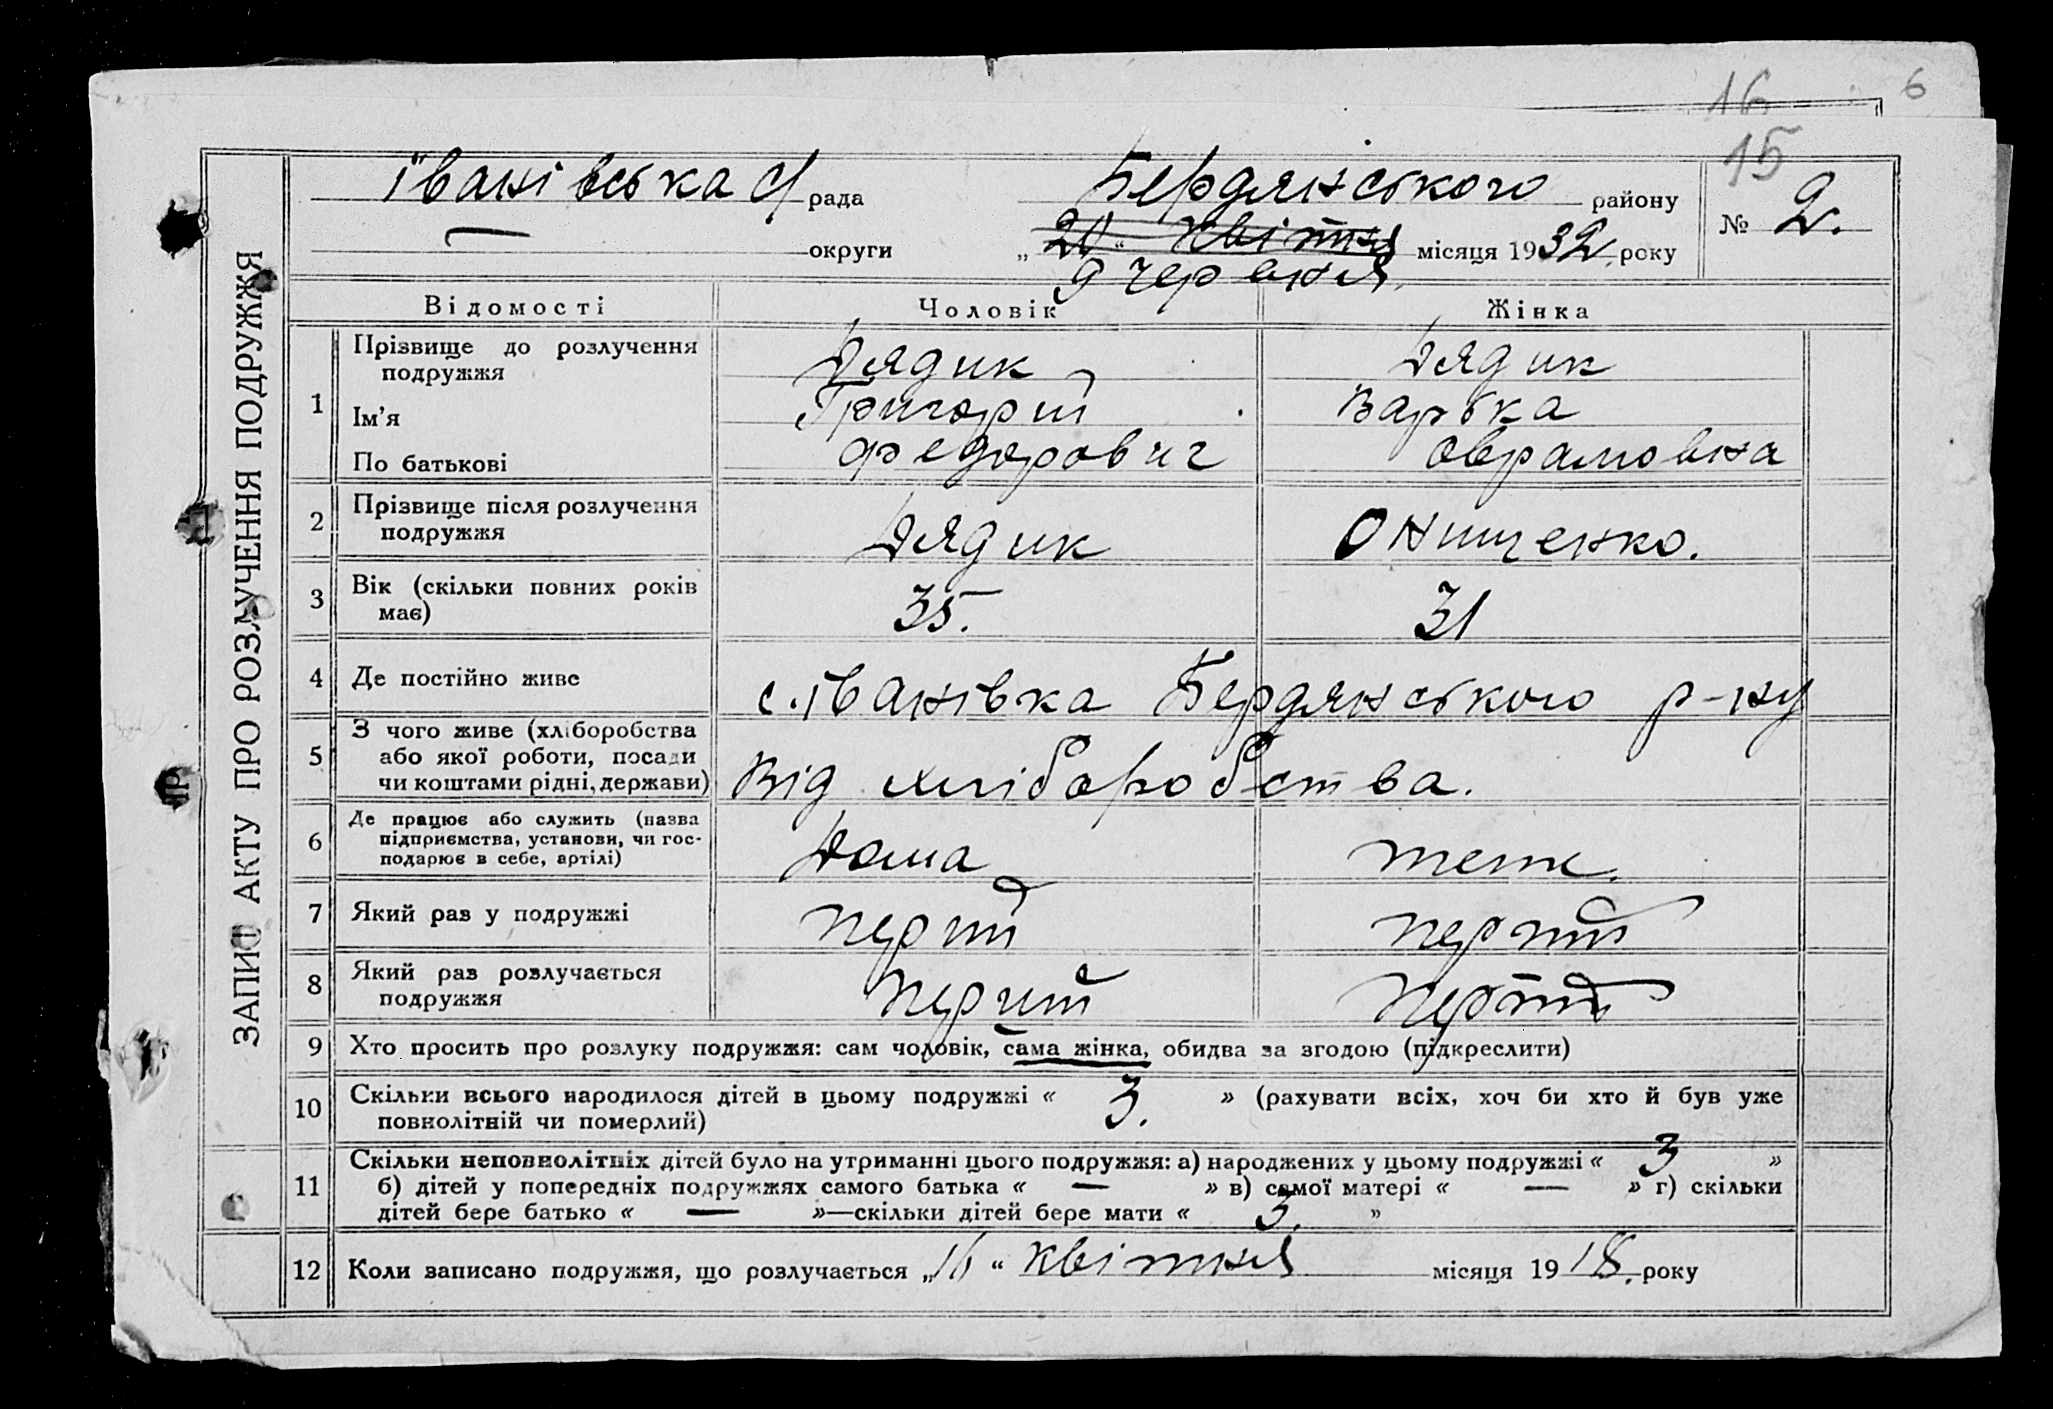 16 6
15
ЗАПИС АКТУ ПРО РОЗЛУЧЕННЯ ПОДРУЖЖЯ
Іванівська с/ рада Бердянського району № 2.
— округи „20“ квітня місяця 1932 року
9 червня.
Відомості Чоловік Жінка
1 Прізвище до розлучення подружжя Дядик Дядик
Ім’я Григорій Варька
По батькові Федорович Оврамовна
2 Прізвище після розлучення подружжя Дядик Онищенко.
3 Вік (скільки повних років має) 35. 31
4 Де постійно живе с. Іванівка Бердянського р-ну
5 З чого живе (хліборобства
або якої роботи, посади
чи коштами рідні, держави) Від хліборобства.
6 Де працює або служить (назва
підприємства, установи, чи гос-
подарює в себе, артілі) Дома теж.
7 Який раз у подружжі перший перший
8 Який раз розлучається
подружжя перший перший
9 Хто просить про розлуку подружжя: сам чоловік, сама жінка, обидва за згодою (підкреслити)
10 Скільки всього народилося дітей в цьому подружжі « 3. » (рахувати всіх, хоч би хто й був уже
повнолітній чи померлий)
11 Скільки неповнолітніх дітей було на утриманні цього подружжя: а) народжених у цьому подружжі « 3 »
б) дітей у попередніх подружжях самого батька « — » в) самої матері « — » г) скільки
дітей бере батько « — »—скільки дітей бере мати « 3. »
12 Коли записано подружжя, що розлучається „16“ квітня місяця 1918. року